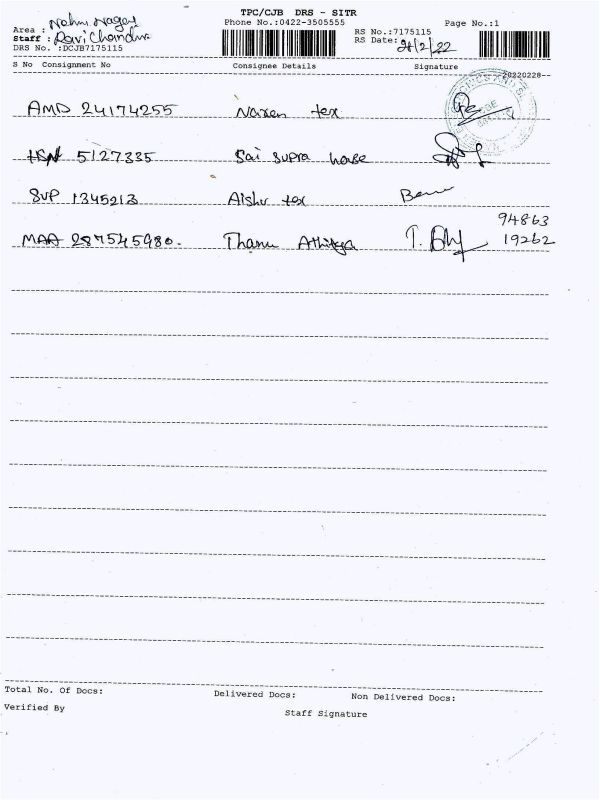 TPC/CJB DRS - SITR
Area : Nehru Nagar Phone No.:0422-3505555 RS No.:7175115 Page No.:1
Staff : Ravi Chandra RS Date: 28/2/22
DRS No. :DCJB7175115
S No Consignment No Consignee Details Signature
20220228
AMD 24174255 Naren tex
5127335 Sai Supra
SVP 1345213 Aishu tex
MAA 287545980. Thanu Athitya 94863
19262
Total No. Of Docs: Delivered Docs: Non Delivered Docs:
Verified By Staff Signature